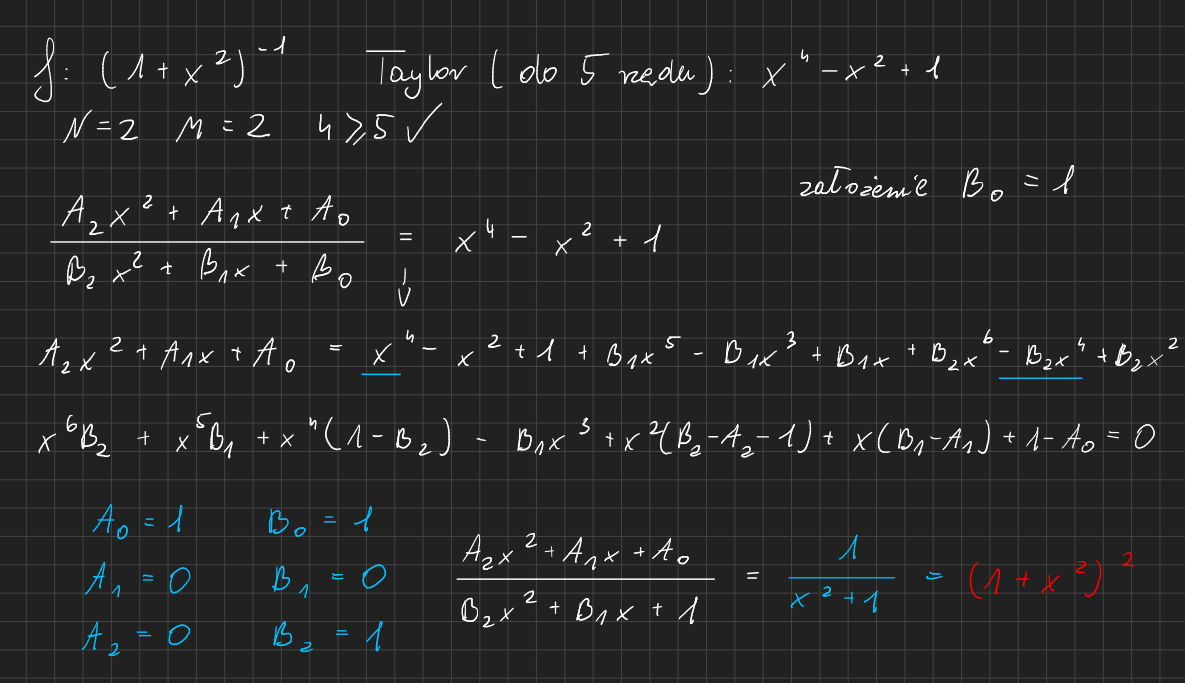 f: (1 + x²)⁻¹ Taylor (do 5 rzędu): x⁴ - x² + 1
N = 2 M = 2 4 ⩾ 5 ✓
założenie B₀ = 1
A₂x² + A₁x + A₀ / B₂x² + B₁x + B₀ = x⁴ - x² + 1
A₂x² + A₁x + A₀ = x⁴ - x² + 1 + B₁x⁵ - B₁x³ + B₁x + B₂x⁶ - B₂x⁴ + B₂x²
x⁶B₂ + x⁵B₁ + x⁴(1 - B₂) - B₁x³ + x²(B₂ - A₂ - 1) + x(B₁ - A₁) + 1 - A₀ = 0
A₀ = 1 B₀ = 1
A₁ = 0 B₁ = 0
A₂ = 0 B₂ = 1
A₂x² + A₁x + A₀ / B₂x² + B₁x + 1 = 1 / x² + 1 = (1 + x²)²